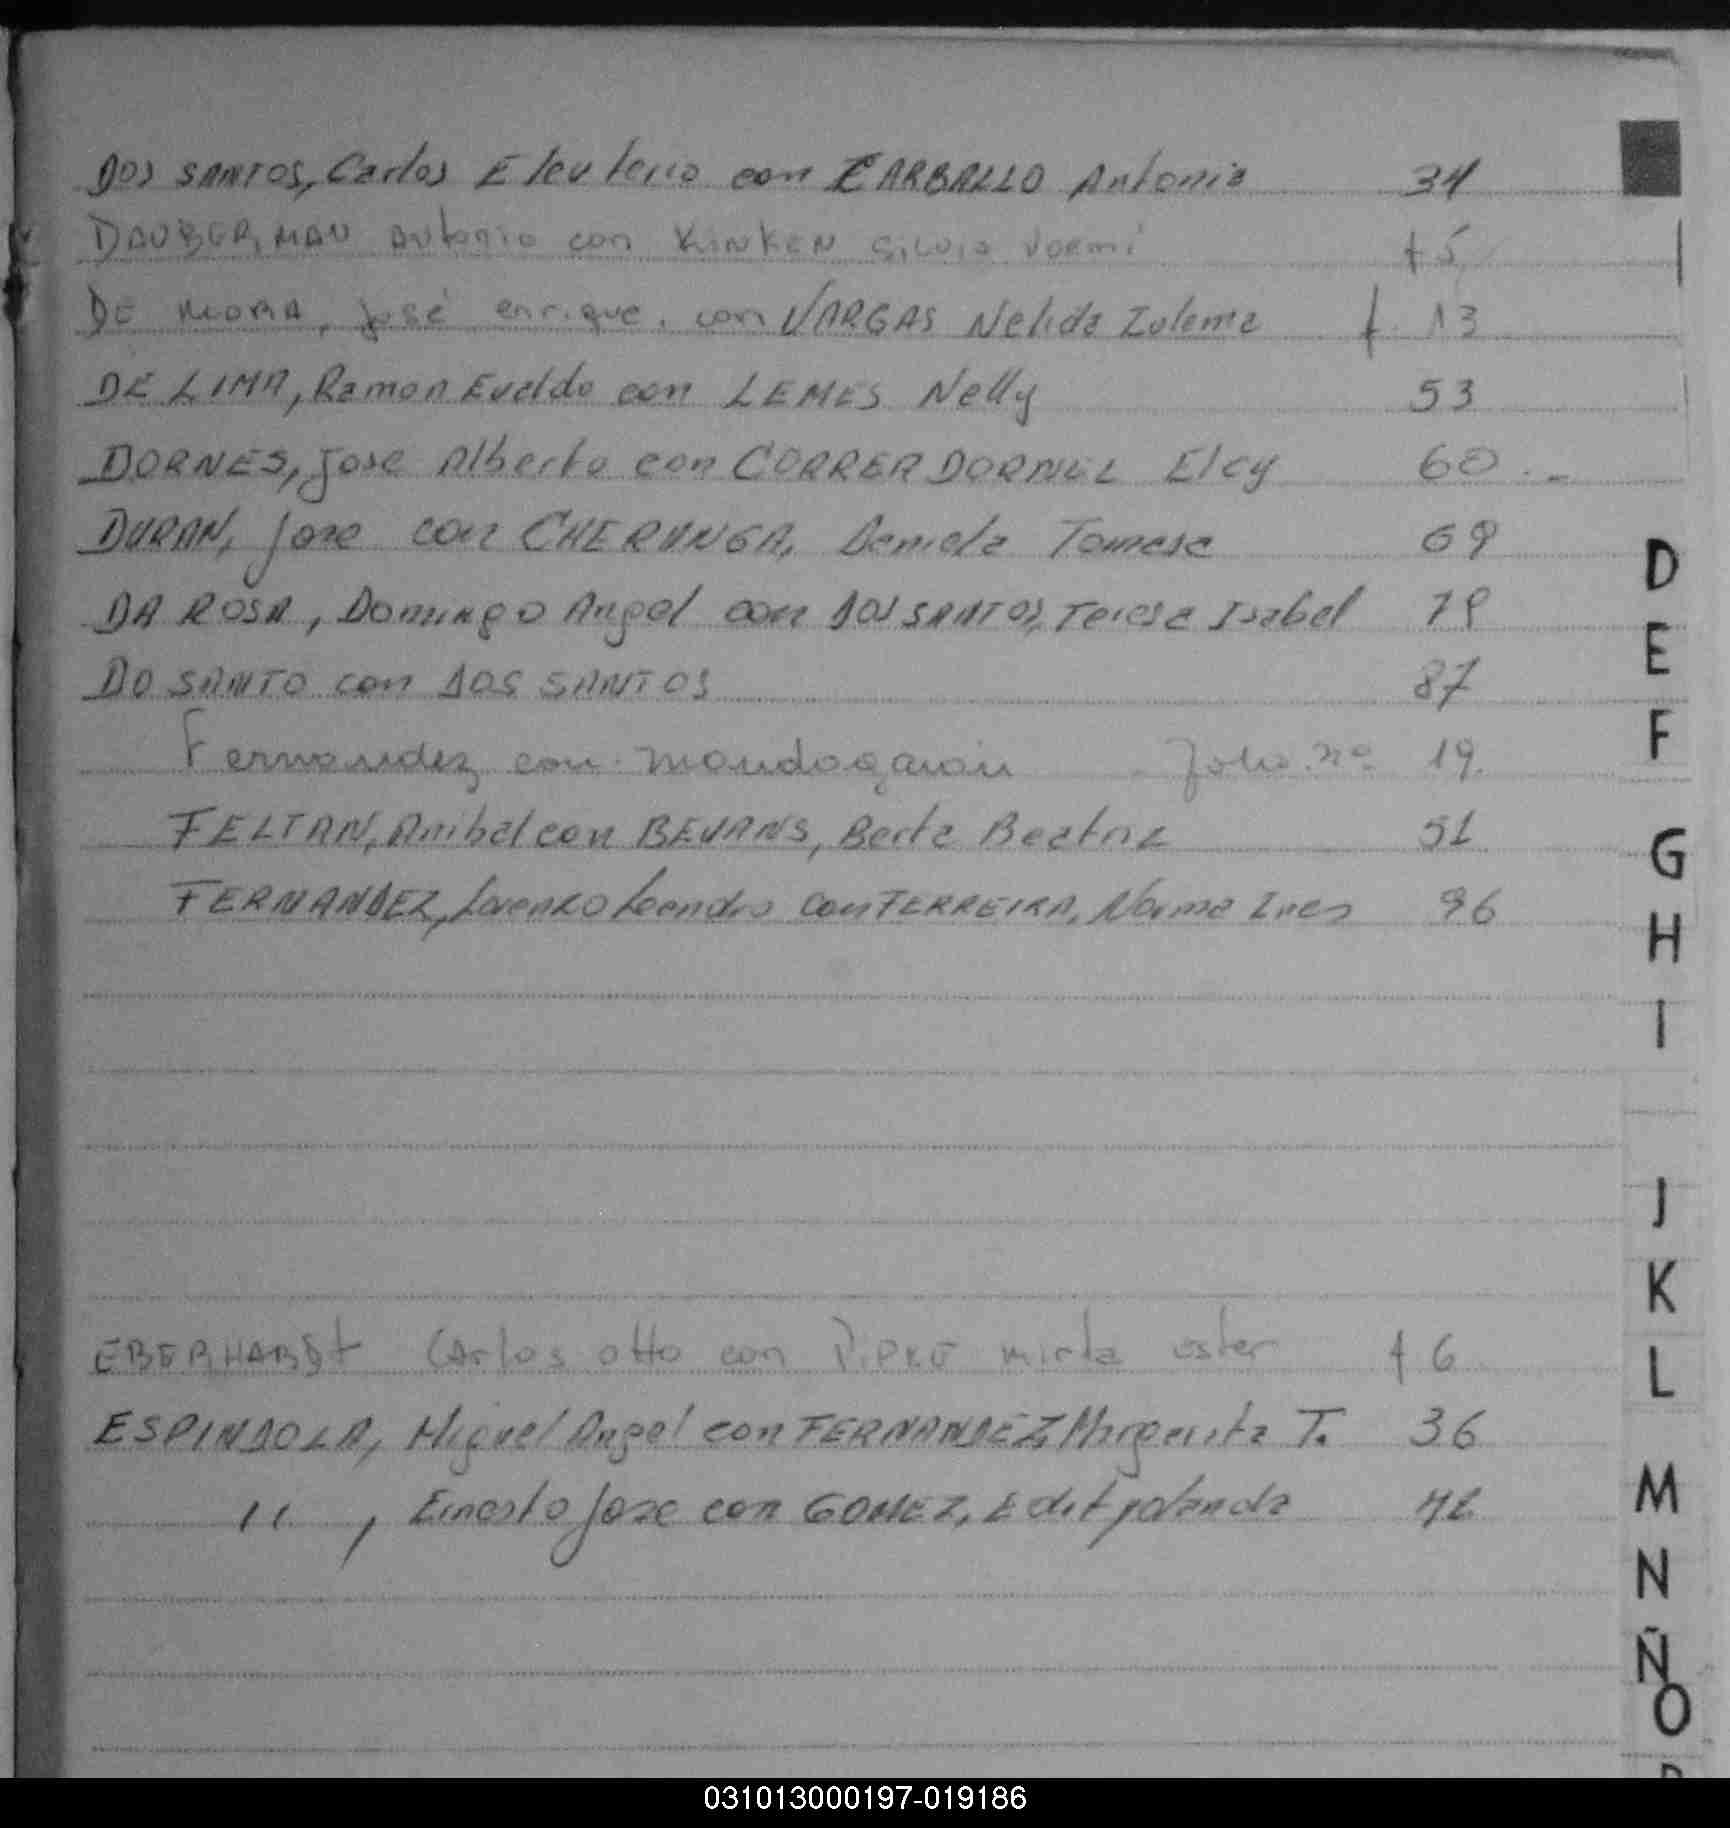 DOS SANTOS, Carlos Eleuterio con CARBALLO Antonia 34
DAUBERMAN Antonio con KINKEN Silvia Noemi f 5
DE MORA, José enrique. con VARGAS Nelida Zulema f. 13
DE LIMA, Ramon Evaldo con LEMES Nelly 53
DORNES, Jose Alberto con CORRER DORNEL Elcy 60.-
DURAN, Jose con CHERUNGA, Daniela Tomasa 69
DA ROSA, Domingo Angel con DOS SANTOS, Teresa Isabel 79
DO SANTO con DOS SANTOS 87
Fernandez con Mondagaron folio nº 19.
FELTAN, Anibal con BEVANS, Berta Beatriz 51
FERNANDEZ, Lorenzo Leandro con FERREIRA, Norma Ines 96
EBERHARDT Carlos otto con PIPKE mirta ester f 6
ESPINDOLA, Miguel Angel con FERNANDEZ, Margarita T. 36
" , Ernesto Jose con GOMEZ, Edit yolanda 42
D
E
F
G
H
I
J
K
L
M
N
Ñ
O
031013000197-019186